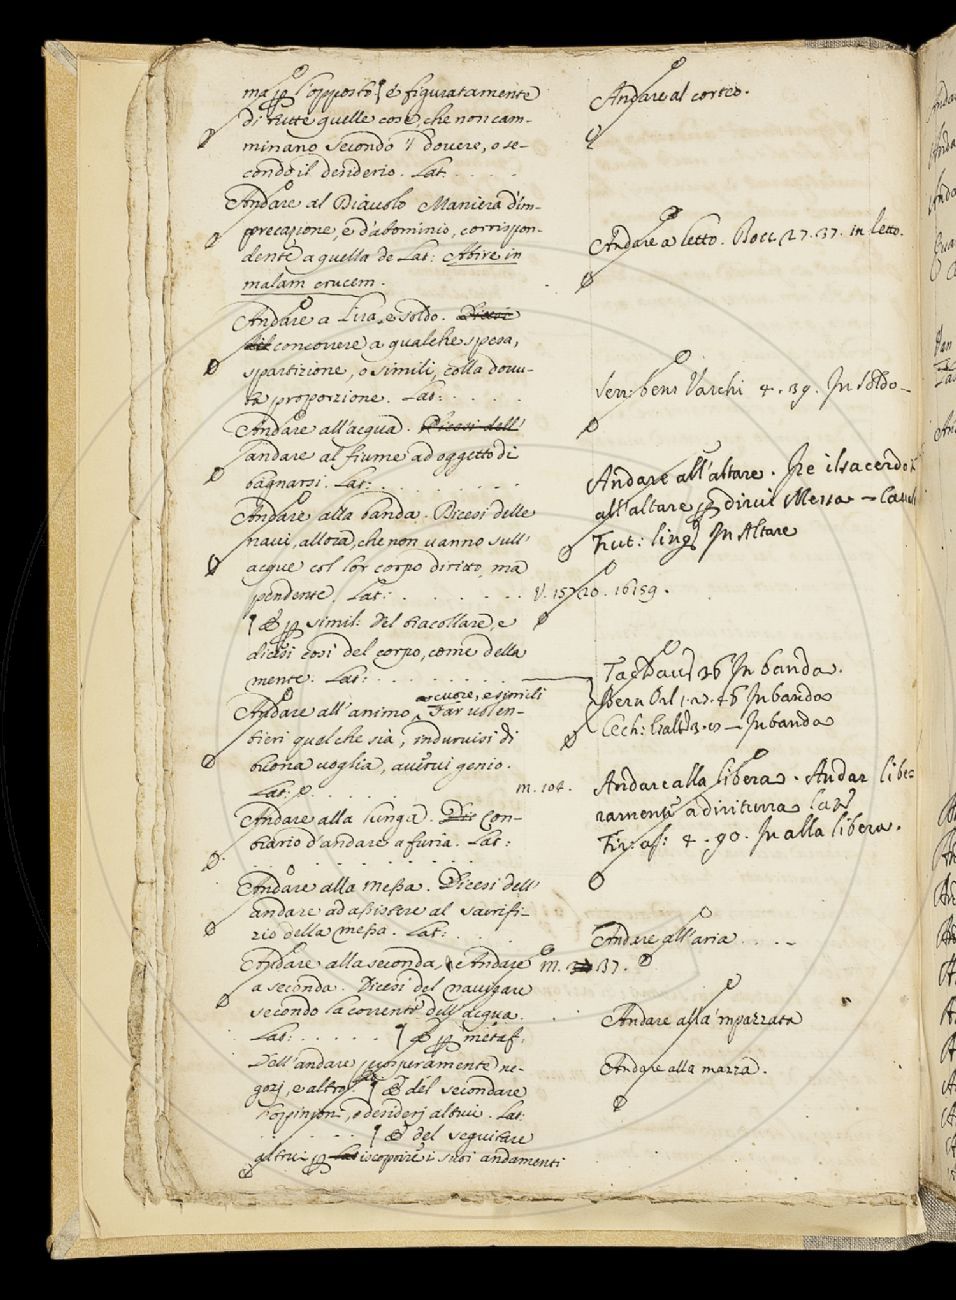 ma p l'opposto ¶ é figuratamente
di tutte quelle cose, che non cam-
minano secondo 'l dovere, o se-
condo il desiderio. Lat. . . . .
Andare al Diavolo Maniera d'im-
precazione, e d'abominio, corrispon-
dente a quella de Lat: Abire in
malam crucem.
Andare a Lira, e soldo.
concorrere a qualche spesa,
spartizione, o simili, colla dovu-
ta proporzione. Lat: . . . .
Andare all'acqua. Dicesi dell'
andare al fiume ad oggetto di
bagnarsi. Lat: . . . . . . .
Andare alla banda. Dicesi delle
navi, allora, che non vanno sull'
acque col lor corpo diritto, ma
pendente. Lat: . . . . . . .
¶ & p simil: del baccollare, e
dicesi così del corpo, come della
mente. Lat: . . . . . . . .
cuore, e simili
Andare all'animo, Far volen-
tieri qualche sia, indursi di
buona voglia, avervi genio.
Lat: . . . . .
Andare alla lunga. Con-
trario d'andare a furia. Lat:
. . . . . . . . .
Andare alla Messa. Dicesi dell'
andare ad assistere al sacrifi-
zio della messa. Lat: . . . .
Andare alla seconda, e Andare
a seconda. Dicesi del navigare
secondo la corrente dell'acqua.
Lat: . . . . . ¶ & p metaf:
Dell'andare prosperamente ne-
gozj, e altro. ¶ & del secondare
l'oppinion, o desiderj altrui. Lat:
. . . . . . ¶ & del seguitare
altrui p iscoprire i suoi andamenti
Andare al corteo.
Andare a letto. Bocc. 27. 37. in letto.
Sen: ben: Varchi 4. 39. In soldo
Andare all'altare. Ire il sacerdote
all'altare p dirvi Messa
Frut: ling. In Altare
V. 15720. 16159.
Tac. Dav. 36 In banda.
Bern Orl. 1. 2. 46 In banda
Cech: In banda
m. 104.
Andare alla libera. Andar libe-
ramente a dirittura
Fir. as: 4. 90. In alla libera.
Andare all'aria . . . .
m. 37.
Andare alla 'mpazzata
Andare alla mazza.